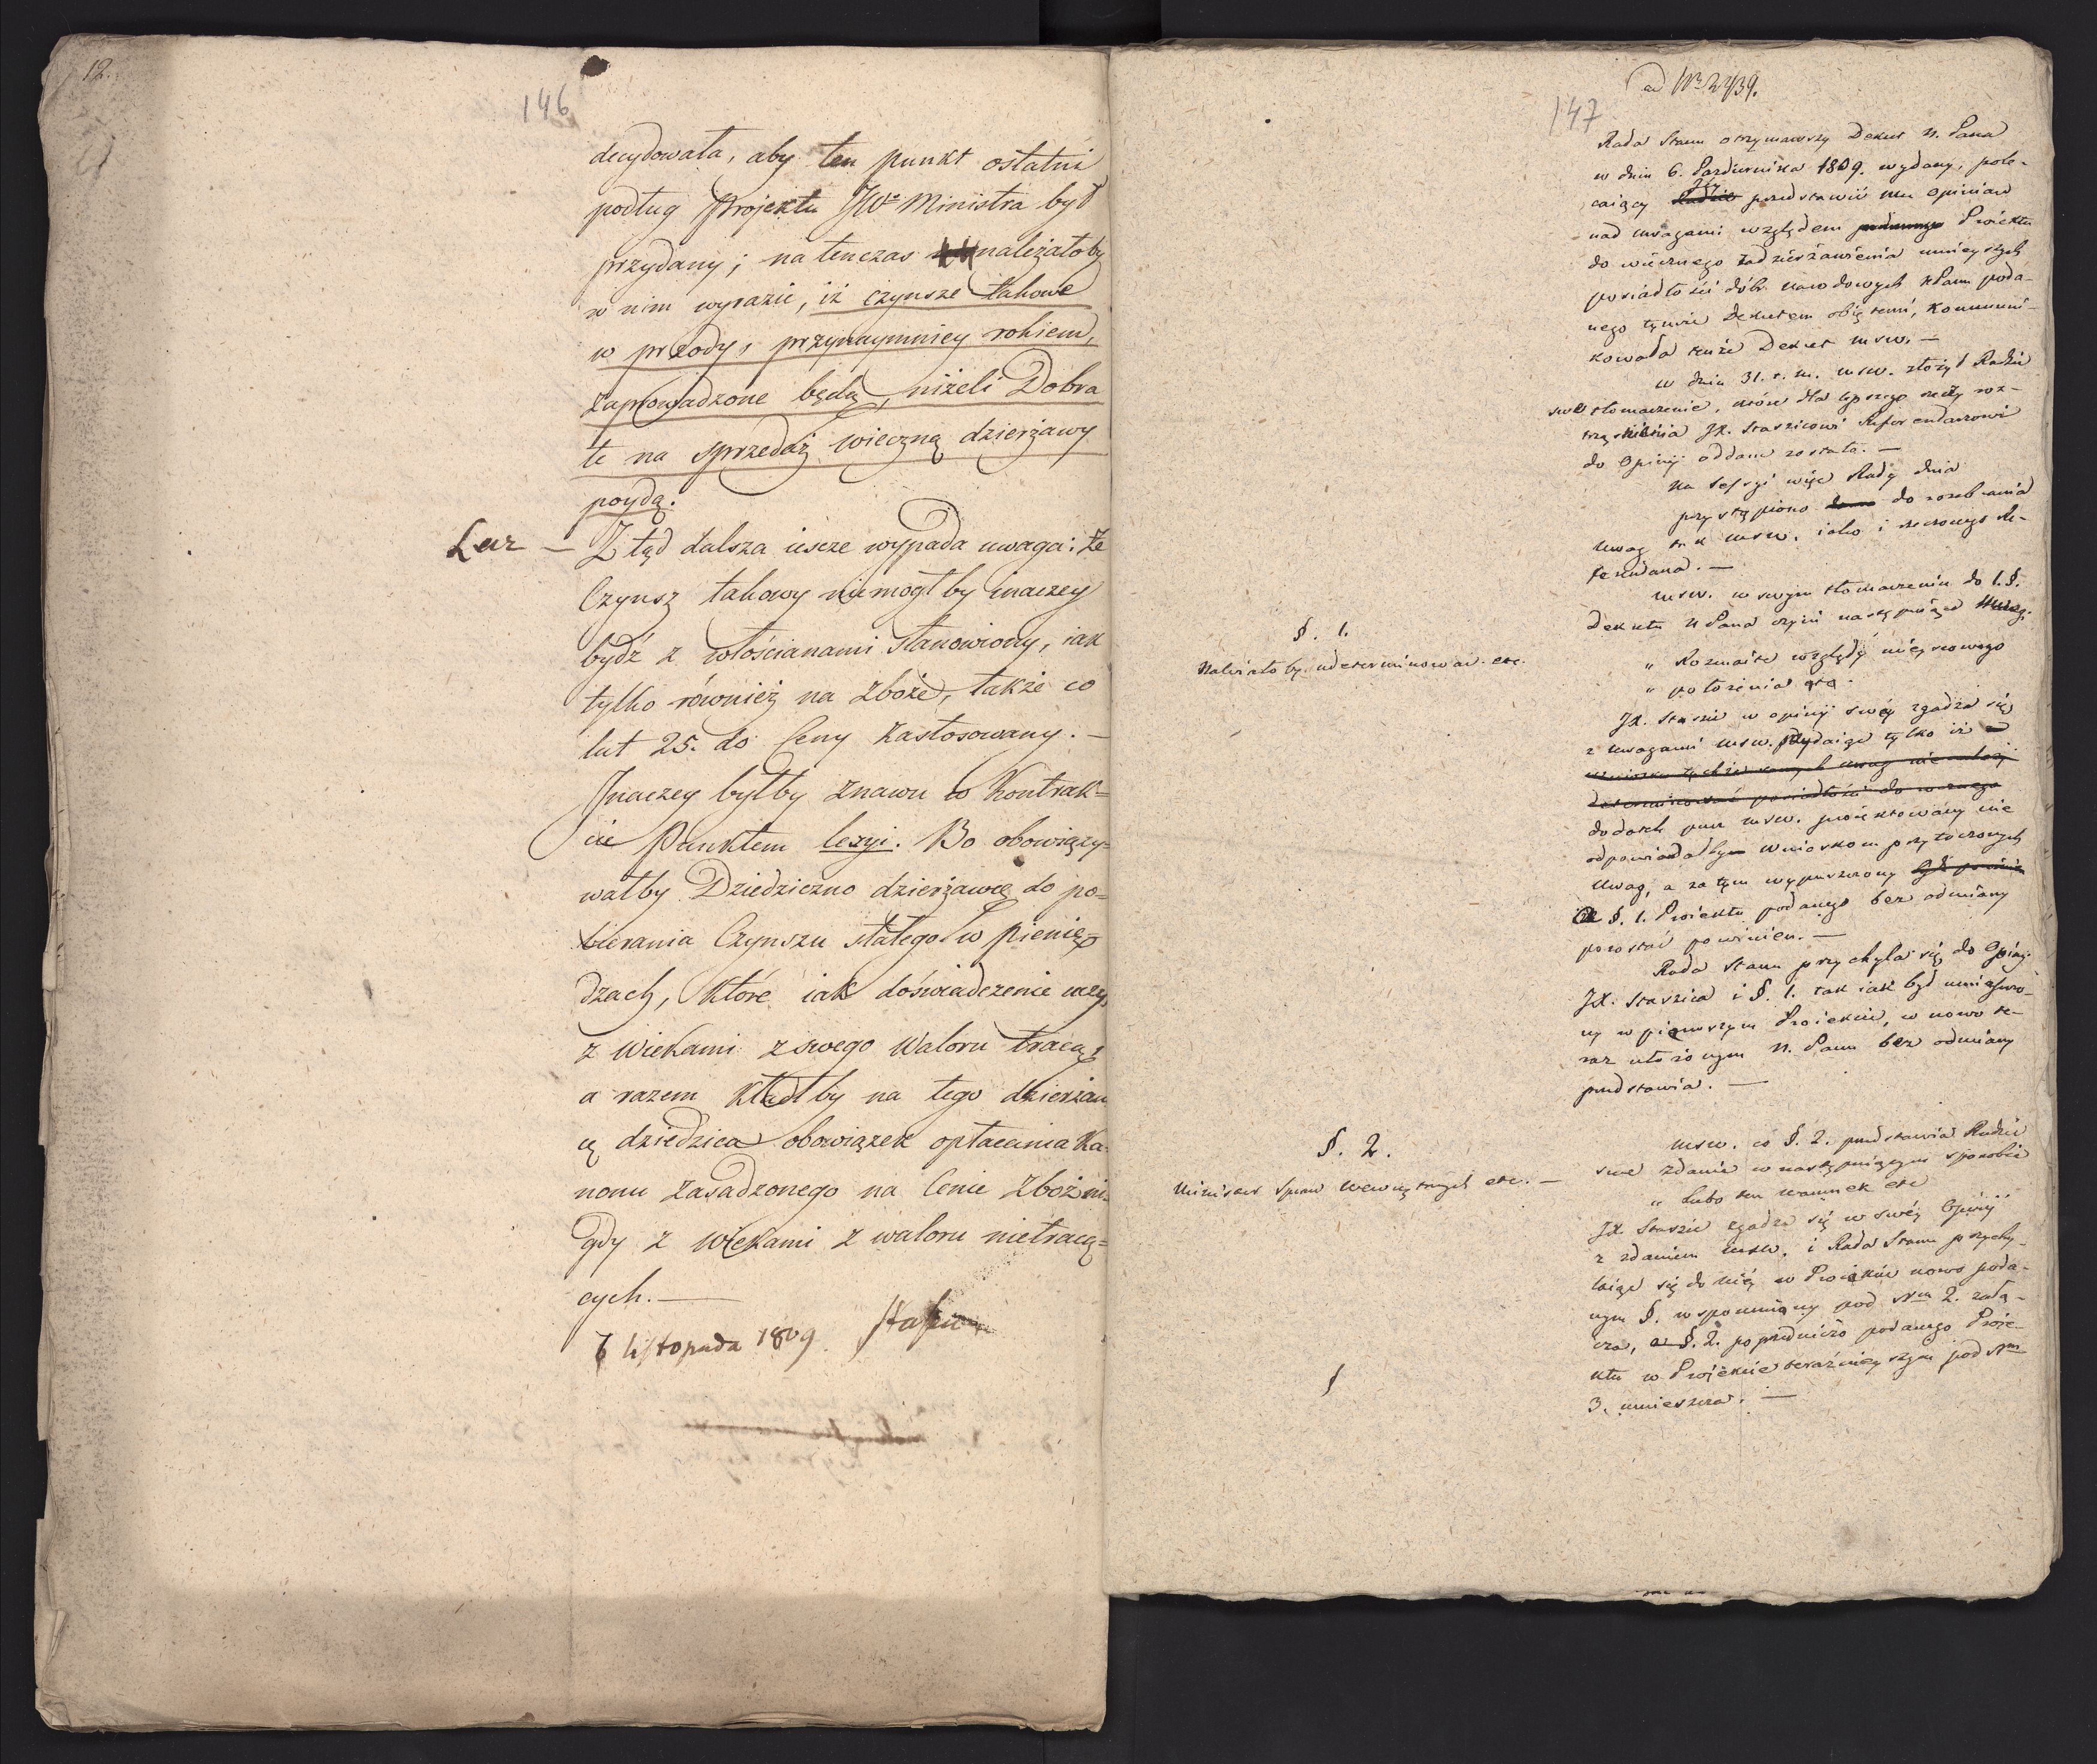 12.
146
decydowała, aby ten punkt ostatni
podług Projektu JWo Ministra był
przydany; natenczas należałoby
w nim wyrazić, iż czynsze takowe
w przody, przynaymniey rokiem,
zaprowadzone będą, niżeli Dobra
te na sprzedaż wieczną dzierżawy
poydą.
Lecz — Ztąd dalsza iescze wypada uwaga: że
Czynsz takowy niemogł by inaczey
bydź z włościanami stanowiony, iak
tylko również na zboże, także co
lat 25. do Ceny zastosowany. —
Jnaczey byłby znawu w Kontrak=
cie Punktem lezyi. Bo obowiązy=
wałby Dziedziczno dzierżawcę do po=
bierania Czynszu stałego w pienię=
dzach, które iak doświadczenie uczy,
z wiekami z swego Waloru tracą,
a razem kładł by na tego dzierżaw
cę dziedzica obowiązek opłacania Ka-
nonu zasadzonego na Cenie Zboż ni-
gdy z wiekami z waloru nietracą=
cych. —
7 listopada 1809. Staszic
ad Nr 2439.
147
Rada Stanu otrzymawszy Dekret N. Pana
w dniu 6. Pazdziernika 1809. wydany, pole-
caiący Jey przedstawić mu Opiniaw
nad uwagami względem Proiektu
do wiecznego zadzierżawienia mnieyszych
posiadłości dóbr narodowych N Panu poda-
nego tymże Dekretem obiętemi, Kommuni-
kowała tenże Dekret msw. —
w dniu 31. t. m. msw. złożył Radzie
swe tłomaczenie, które dla lepszego rzeczy roz-
trząśnienia JX. Staszicowi Referendarzowi
do Opinij oddane zostało. —
Na Sessyi więc Rady dnia
przystąpiono do rozebrania
Uwag tak msw. iako i rzeczonego Re-
ferendarza. —
msw. w swym tłomaczeniu do 1. §.
Dekretu N Pana czyni następuiące Uwagi.
§. 1.
Należało by udeterminować. etc.
" Rozmaite względy mieyscowego
" położenia etc.
JX. Staszic w opinij swey zgadza się
z uwagami msw. przydaiąc tylko iż
dodatek przez msw. proiektowany nie
odpowiadałby wnioskom przytoczonych
Uwag, a za tym wypuszczony
a §. 1. Proiektu podanego bez odmiany
pozostać powinien. —
Rada Stanu przychyla się do Opinij
JX. Staszica i §. 1. tak iak był umieszczo-
ny w pierwszym Proiekcie, w nowo te-
raz ułożonym N. Panu bez odmiany
przedstawia. —
§. 2.
Minister Spraw Wewnętrznych etc. —
msw. co §. 2. przedstawia Radzie
swe zdanie w następuiącym sposobie
" Lubo ten warunek etc
JX Staszic zgadza się w swéy Opinij
z zdaniem msw. i Rada Stanu przychy-
laiąc się do niéy w Proiekcie nowo poda-
nym §. wspomniony pod Nm 2. załą-
cza, a §. 2. poprzedniczo podanego Proie-
ktu w Proiekcie teraźnieyszym pod Nm
3. umieszcza. —
§